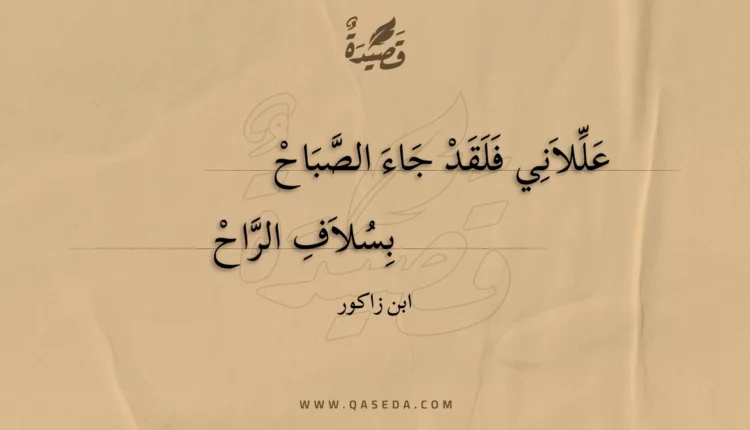 قَصِيدَةٌ
عَلِّلاَنِي فَلَقَدْ جَاءَ الصَّبَاحْ
بِسُلاَفِ الرَّاحْ
ابن زاكور
WWW.QASEDA.COM